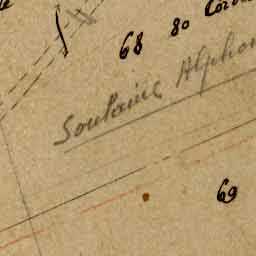 68 80
Soulaine Alphon
69